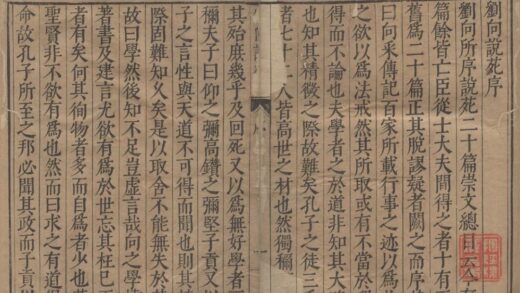 劉向說苑序
劉向所序說苑二十篇崇文總目云今
篇餘皆亡臣從士大夫間得之者十有
舊為二十篇正其脫謬疑者闕之而
曰向采傳記百家所載行事之迹以為
之欲以為法戒然其所取或有不當於
得而不論也夫學者之於道非知其大
也知其精微之際故難矣孔子之徒三
者七十二人皆高世之材也然獨稱
序
一
其殆庶幾乎及回死又以為無好學者
彌夫子曰仰之彌高鑽之彌堅子貢又
子之言性與天道不可得而聞也則其
際固難知久矣是以取舍不能無失於
故曰學然後知不足豈虛言哉向之學
著書及建言尤欲有為於世忘其枉己
者有矣何其徇物者多而自為者少也
聖賢非不欲有為也然而曰求之有道
命故孔子所至之邦必聞其政而子貢以